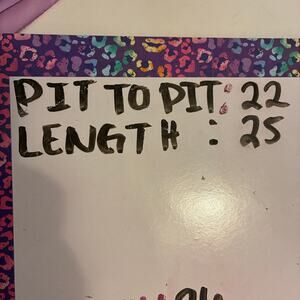 PIT TO PIT: 22
LENGTH : 25